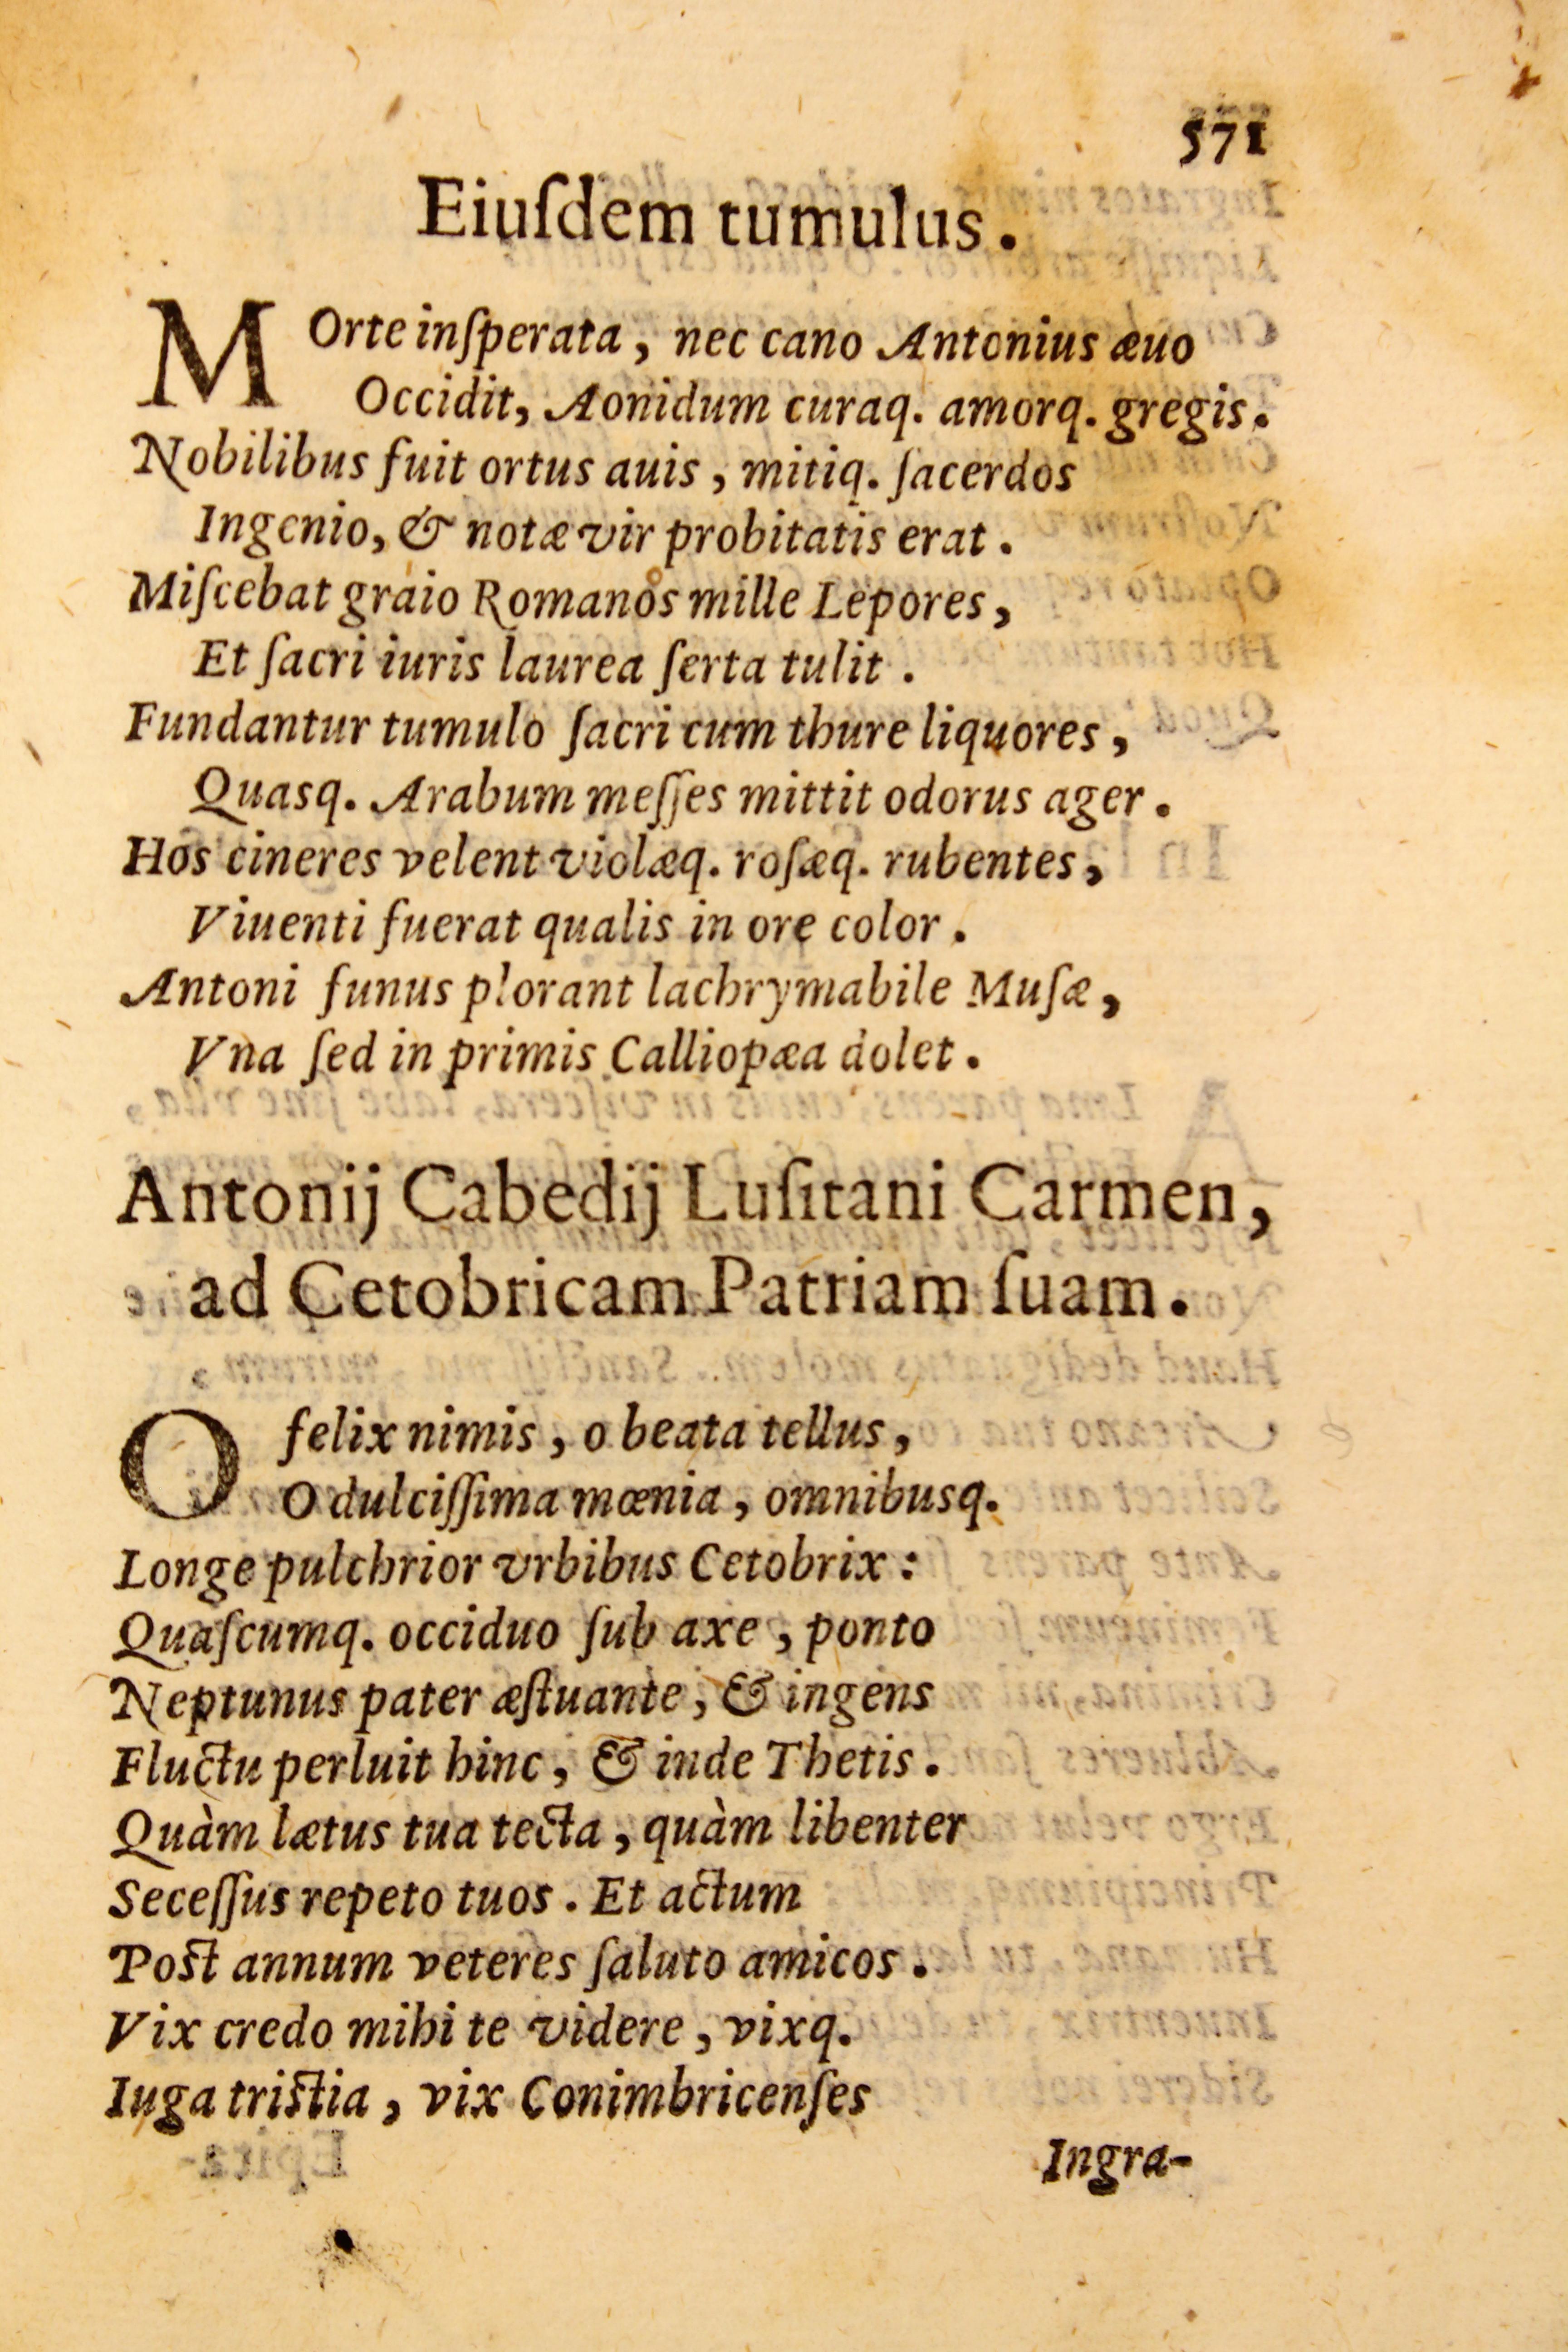 571
Eiuſdem tumulus.
MOrte inſperata, nec cano Antonius æuo
Occidit, Aonidum curaq. amorq. gregis.
Nobilibus fuit ortus auis, mitiq. ſacerdos
Ingenio, & notæ vir probitatis erat.
Miſcebat graio Romanos mille Lepores,
Et ſacri iuris laurea ſerta tulit.
Fundantur tumulo ſacri cum thure liquores,
Quasq. Arabum meſſes mittit odorus ager.
Hos cineres velent violæq. roſæq. rubentes,
Viuenti fuerat qualis in ore color.
Antoni funus plorant lachrymabile Muſæ,
Vna ſed in primis Calliopæa dolet.
Antonij Cabedij Luſitani Carmen,
ad Cetobricam Patriam ſuam.
O felix nimis, o beata tellus,
O dulciſſima mœnia, omnibusq.
Longe pulchrior vrbibus Cetobrix:
Quaſcumq. occiduo ſub axe, ponto
Neptunus pater æſtuante, & ingens
Fluctu perluit hinc, & inde Thetis.
Quàm lætus tua tecta, quàm libenter
Seceſſus repeto tuos. Et actum
Post annum veteres ſaluto amicos.
Vix credo mihi te videre, vixq.
Iuga tristia, vix Conimbricenſes
Ingra-